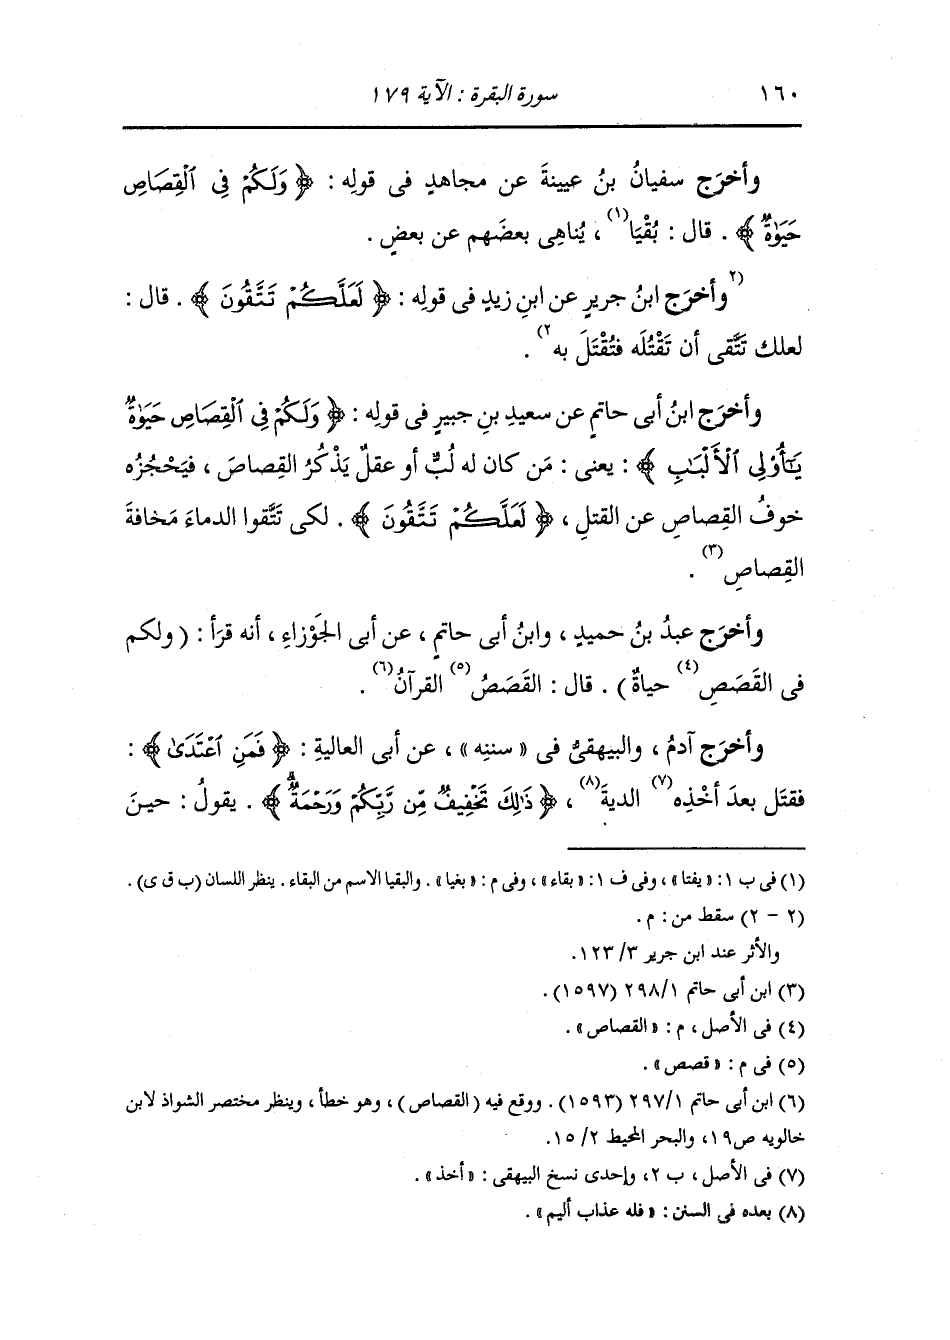 ١٦٠ سورة البقرة : الآية ١٧٩
وأخرَج سفيانُ بنُ عيينةَ عن مجاهدٍ فى قولِه : ﴿ وَلَكُمْ فِى ٱلْقِصَاصِ
حَيَوٰةٌ ﴾ . قال : بُقْيَا(١) ، يُناهِى بعضَهم عن بعضٍ .
(٢)وأخرَج ابنُ جريرٍ عن ابنِ زيدٍ فى قولِه : ﴿ لَعَلَّكُمْ تَتَّقُونَ ﴾ . قال :
لعلك تَتَّقى أن تَقْتُلَه فتُقْتَلَ به(٢) .
وأخرَج ابنُ أبى حاتمٍ عن سعيدِ بنِ جبيرٍ فى قولِه : ﴿ وَلَكُمْ فِى ٱلْقِصَاصِ حَيَوٰةٌ
يَٰٓأُو۟لِى ٱلْأَلْبَٰبِ ﴾ : يعنى : مَن كان له لُبٌّ أو عقلٌ يَذْكُرُ القِصاصَ ، فيَحْجُزُه
خوفُ القِصاصِ عن القتلِ ، ﴿ لَعَلَّكُمْ تَتَّقُونَ ﴾ . لكى تَتَّقوا الدماءَ مَخافةَ
القِصاصِ(٣) .
وأخرَج عبدُ بنُ حميدٍ ، وابنُ أبى حاتمٍ ، عن أبى الجَوْزاءِ ، أنه قرَأ : ( ولكم
فى القَصَصِ(٤) حياةٌ ) . قال : القَصَصُ(٥) القرآنُ(٦) .
وأخرَج آدمُ ، والبيهقىُّ فى « سننِه » ، عن أبى العاليةِ : ﴿ فَمَنِ ٱعْتَدَىٰ ﴾ :
فقتَل بعدَ أخْذِه(٧) الديةَ(٨) ، ﴿ ذَٰلِكَ تَخْفِيفٌ مِّن رَّبِّكُمْ وَرَحْمَةٌ ﴾ . يقولُ : حينَ
(١) فى ب ١ : « يفتا » ، وفى ف ١ : « بقاء » ، وفى م : « بغيا » . والبقيا الاسم من البقاء . ينظر اللسان (ب ق ى) .
(٢ - ٢) سقط من : م .
والأثر عند ابن جرير ٣/ ١٢٣.
(٣) ابن أبى حاتم ٢٩٨/١ (١٥٩٧) .
(٤) فى الأصل ، م : « القصاص » .
(٥) فى م : « قصص » .
(٦) ابن أبى حاتم ٢٩٧/١ (١٥٩٣) . ووقع فيه ( القصاص ) ، وهو خطأ ، وينظر مختصر الشواذ لابن
خالويه ص١٩، والبحر المحيط ٢/ ١٥.
(٧) فى الأصل ، ب ٢، وإحدى نسخ البيهقى : « أخذ » .
(٨) بعده فى السنن : « فله عذاب أليم » .